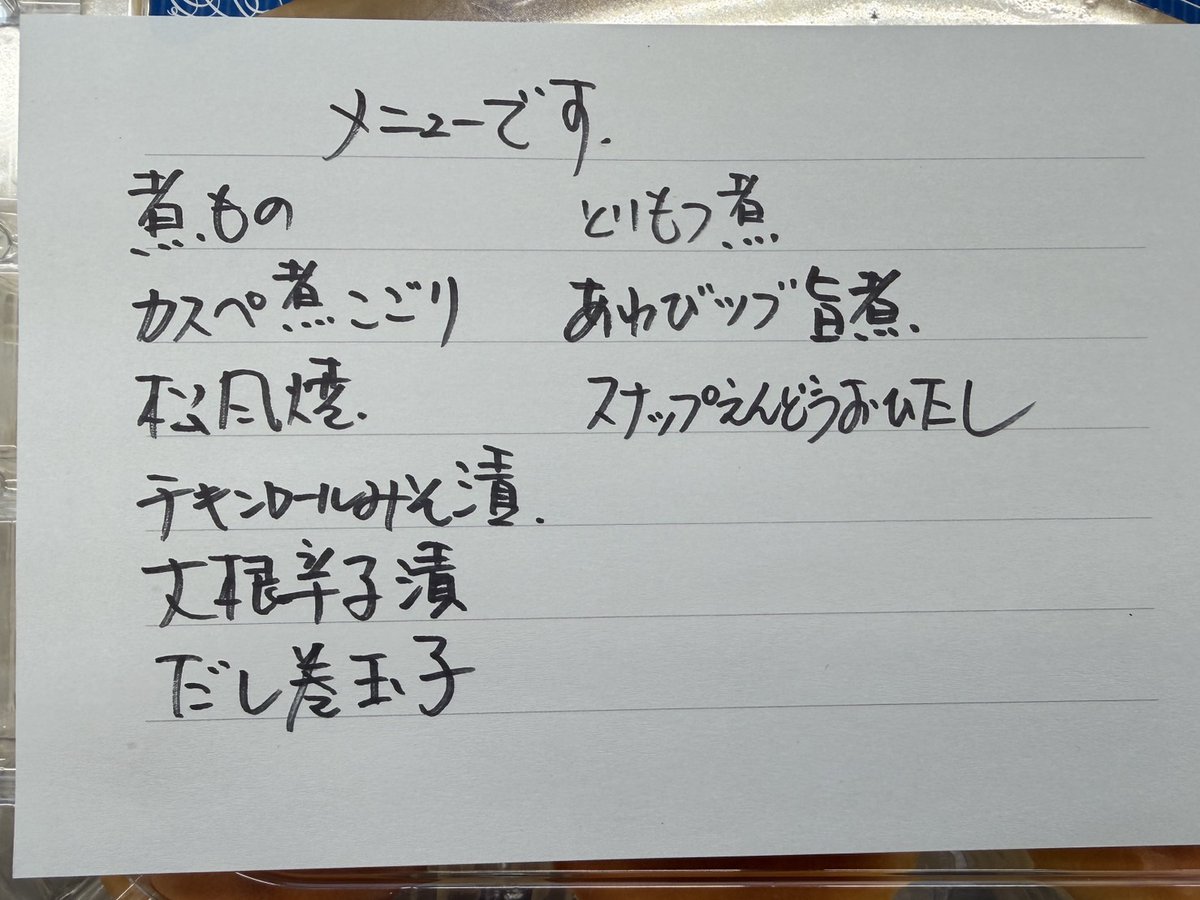 メニューです.
煮もの
カスペ煮こごり
松風焼.
チキンロールみそ漬.
大根辛子漬
だし巻玉子
とりもつ煮
あわびツブ旨煮.
スナップえんどうおひたし